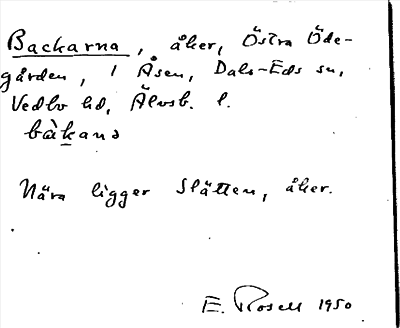 Backarna, åker, Östra Öde-
gården, 1 Åsen, Dals-Eds sn,
Vedbo hd, Älvsb. l.
bàkana
Nära ligger Slätten, åker.
E. Rosell 1950